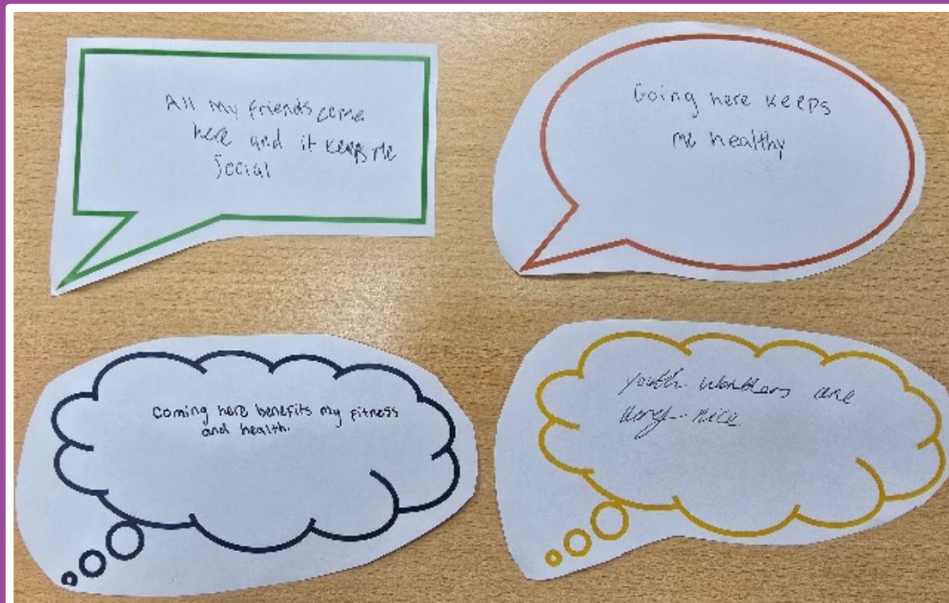 All my friends come
here and it keeps me
social
Going here keeps
me healthy
Coming here benefits my fitness
and health.
youth workers are
very nice